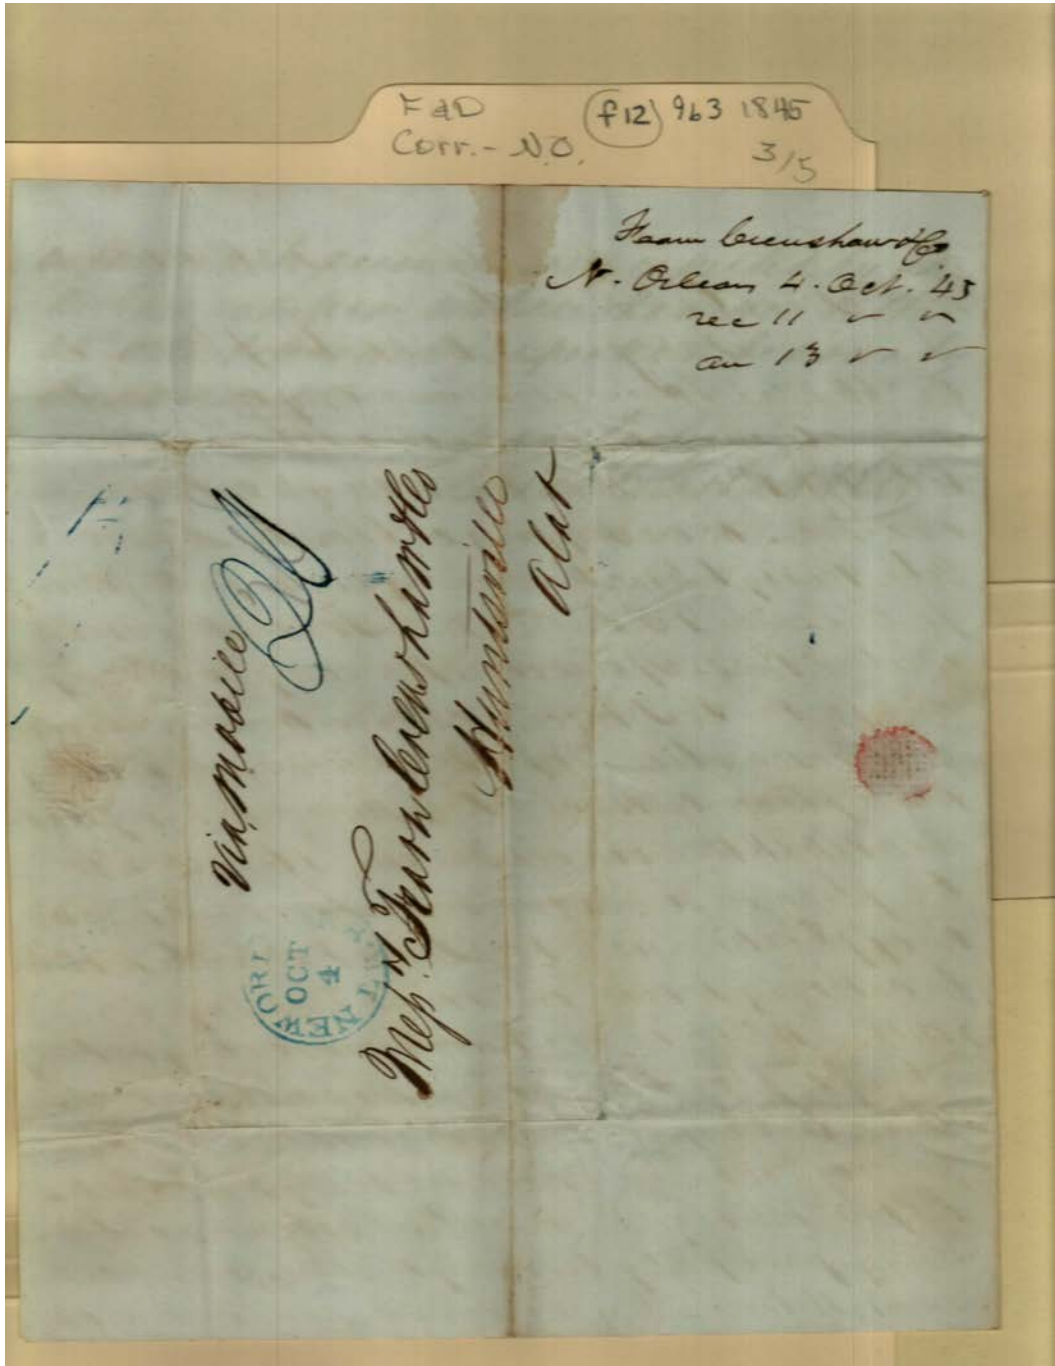 F&D (f12) 963 1845
Corr. - N.O. 3/5
Fearn Crenshaw & Co
N. Orleans 4. Oct. 45
rec 11 " "
an 13 " "
Via Mobile
NEW ORL
OCT
4
Mess. Fearn Crenshaw & Co
Huntsville
Ala